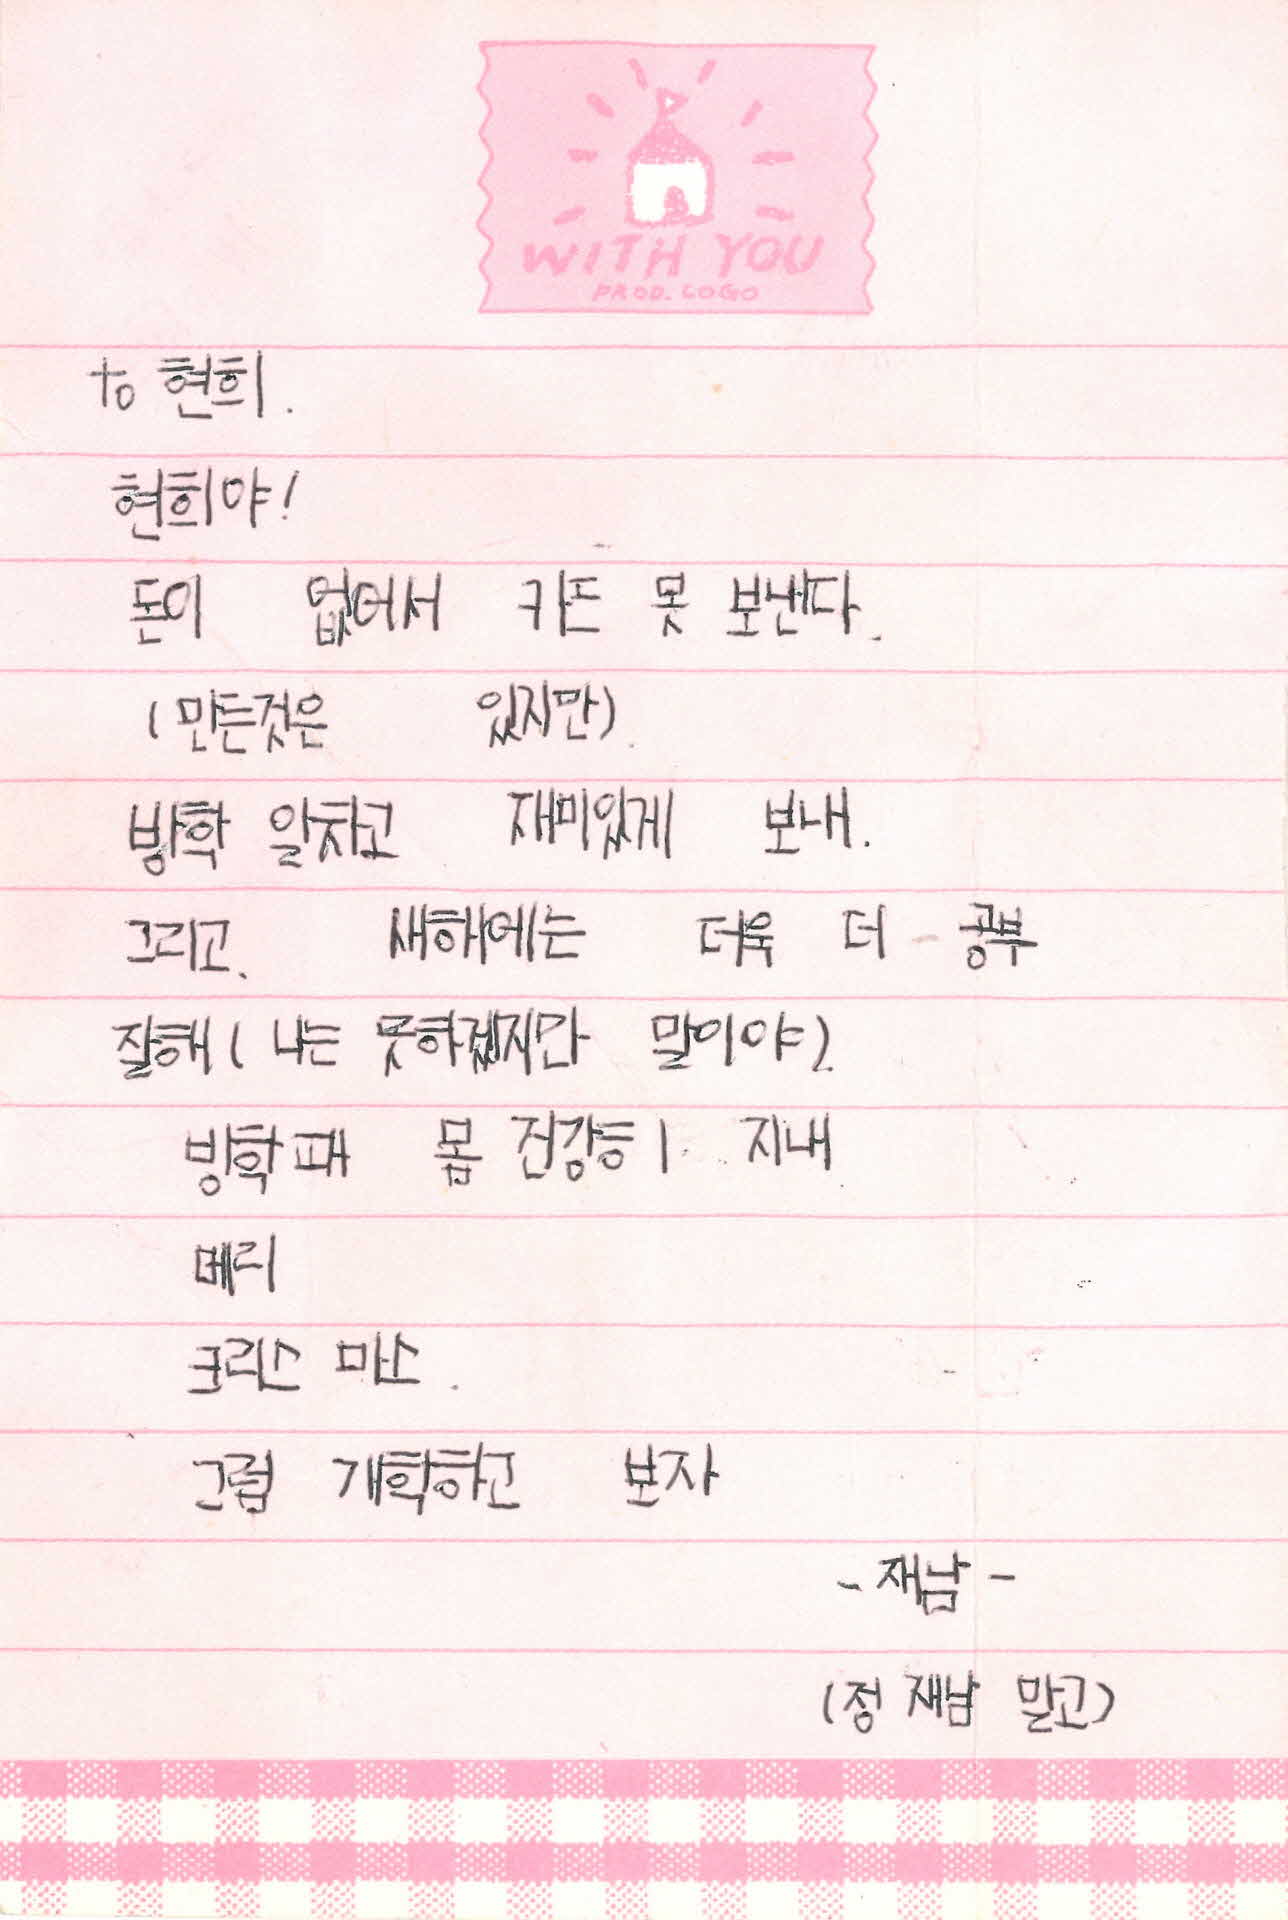 WITH YOU
PROD. LOGO
to 현희.
현희야!
돈이 없어서 카드 못 보낸다.
(만든것은 있지만).
방학 알차고 재미있게 보내.
그리고, 새해에는 더욱 더 공부
잘해 ( 나는 못하겠지만 말이야).
방학때 몸 건강히 지내
메리
크리스 마스.
그럼 개학하고 보자
- 재남 -
(정 재남 말고)